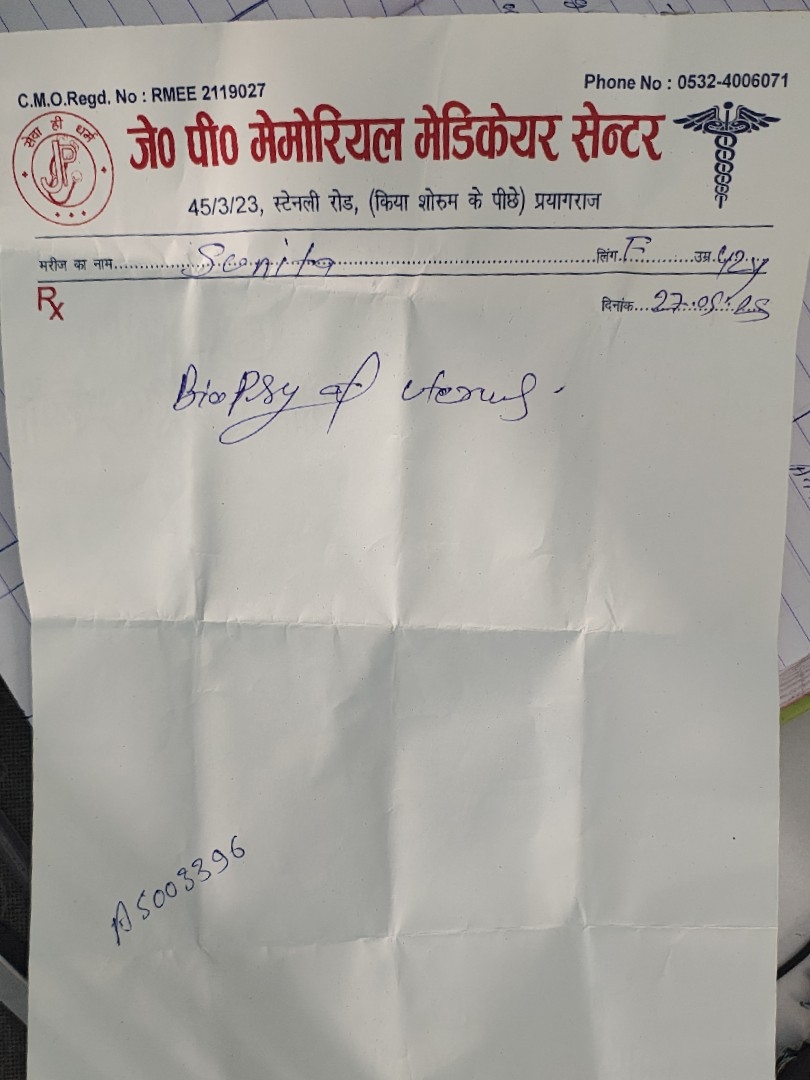 C.M.O.Regd. No : RMEE 2119027
Phone No : 0532-4006071
सेवा ही धर्म
JP
जे0 पी0 मेमोरियल मेडिकेयर सेन्टर
45/3/23, स्टेनली रोड, (किया शोरुम के पीछे) प्रयागराज
मरीज का नाम.....Sunita.....लिंग.F.....उम्र.42y
Rx
दिनांक...27.05.25
Biopsy of uterus.
A5003396